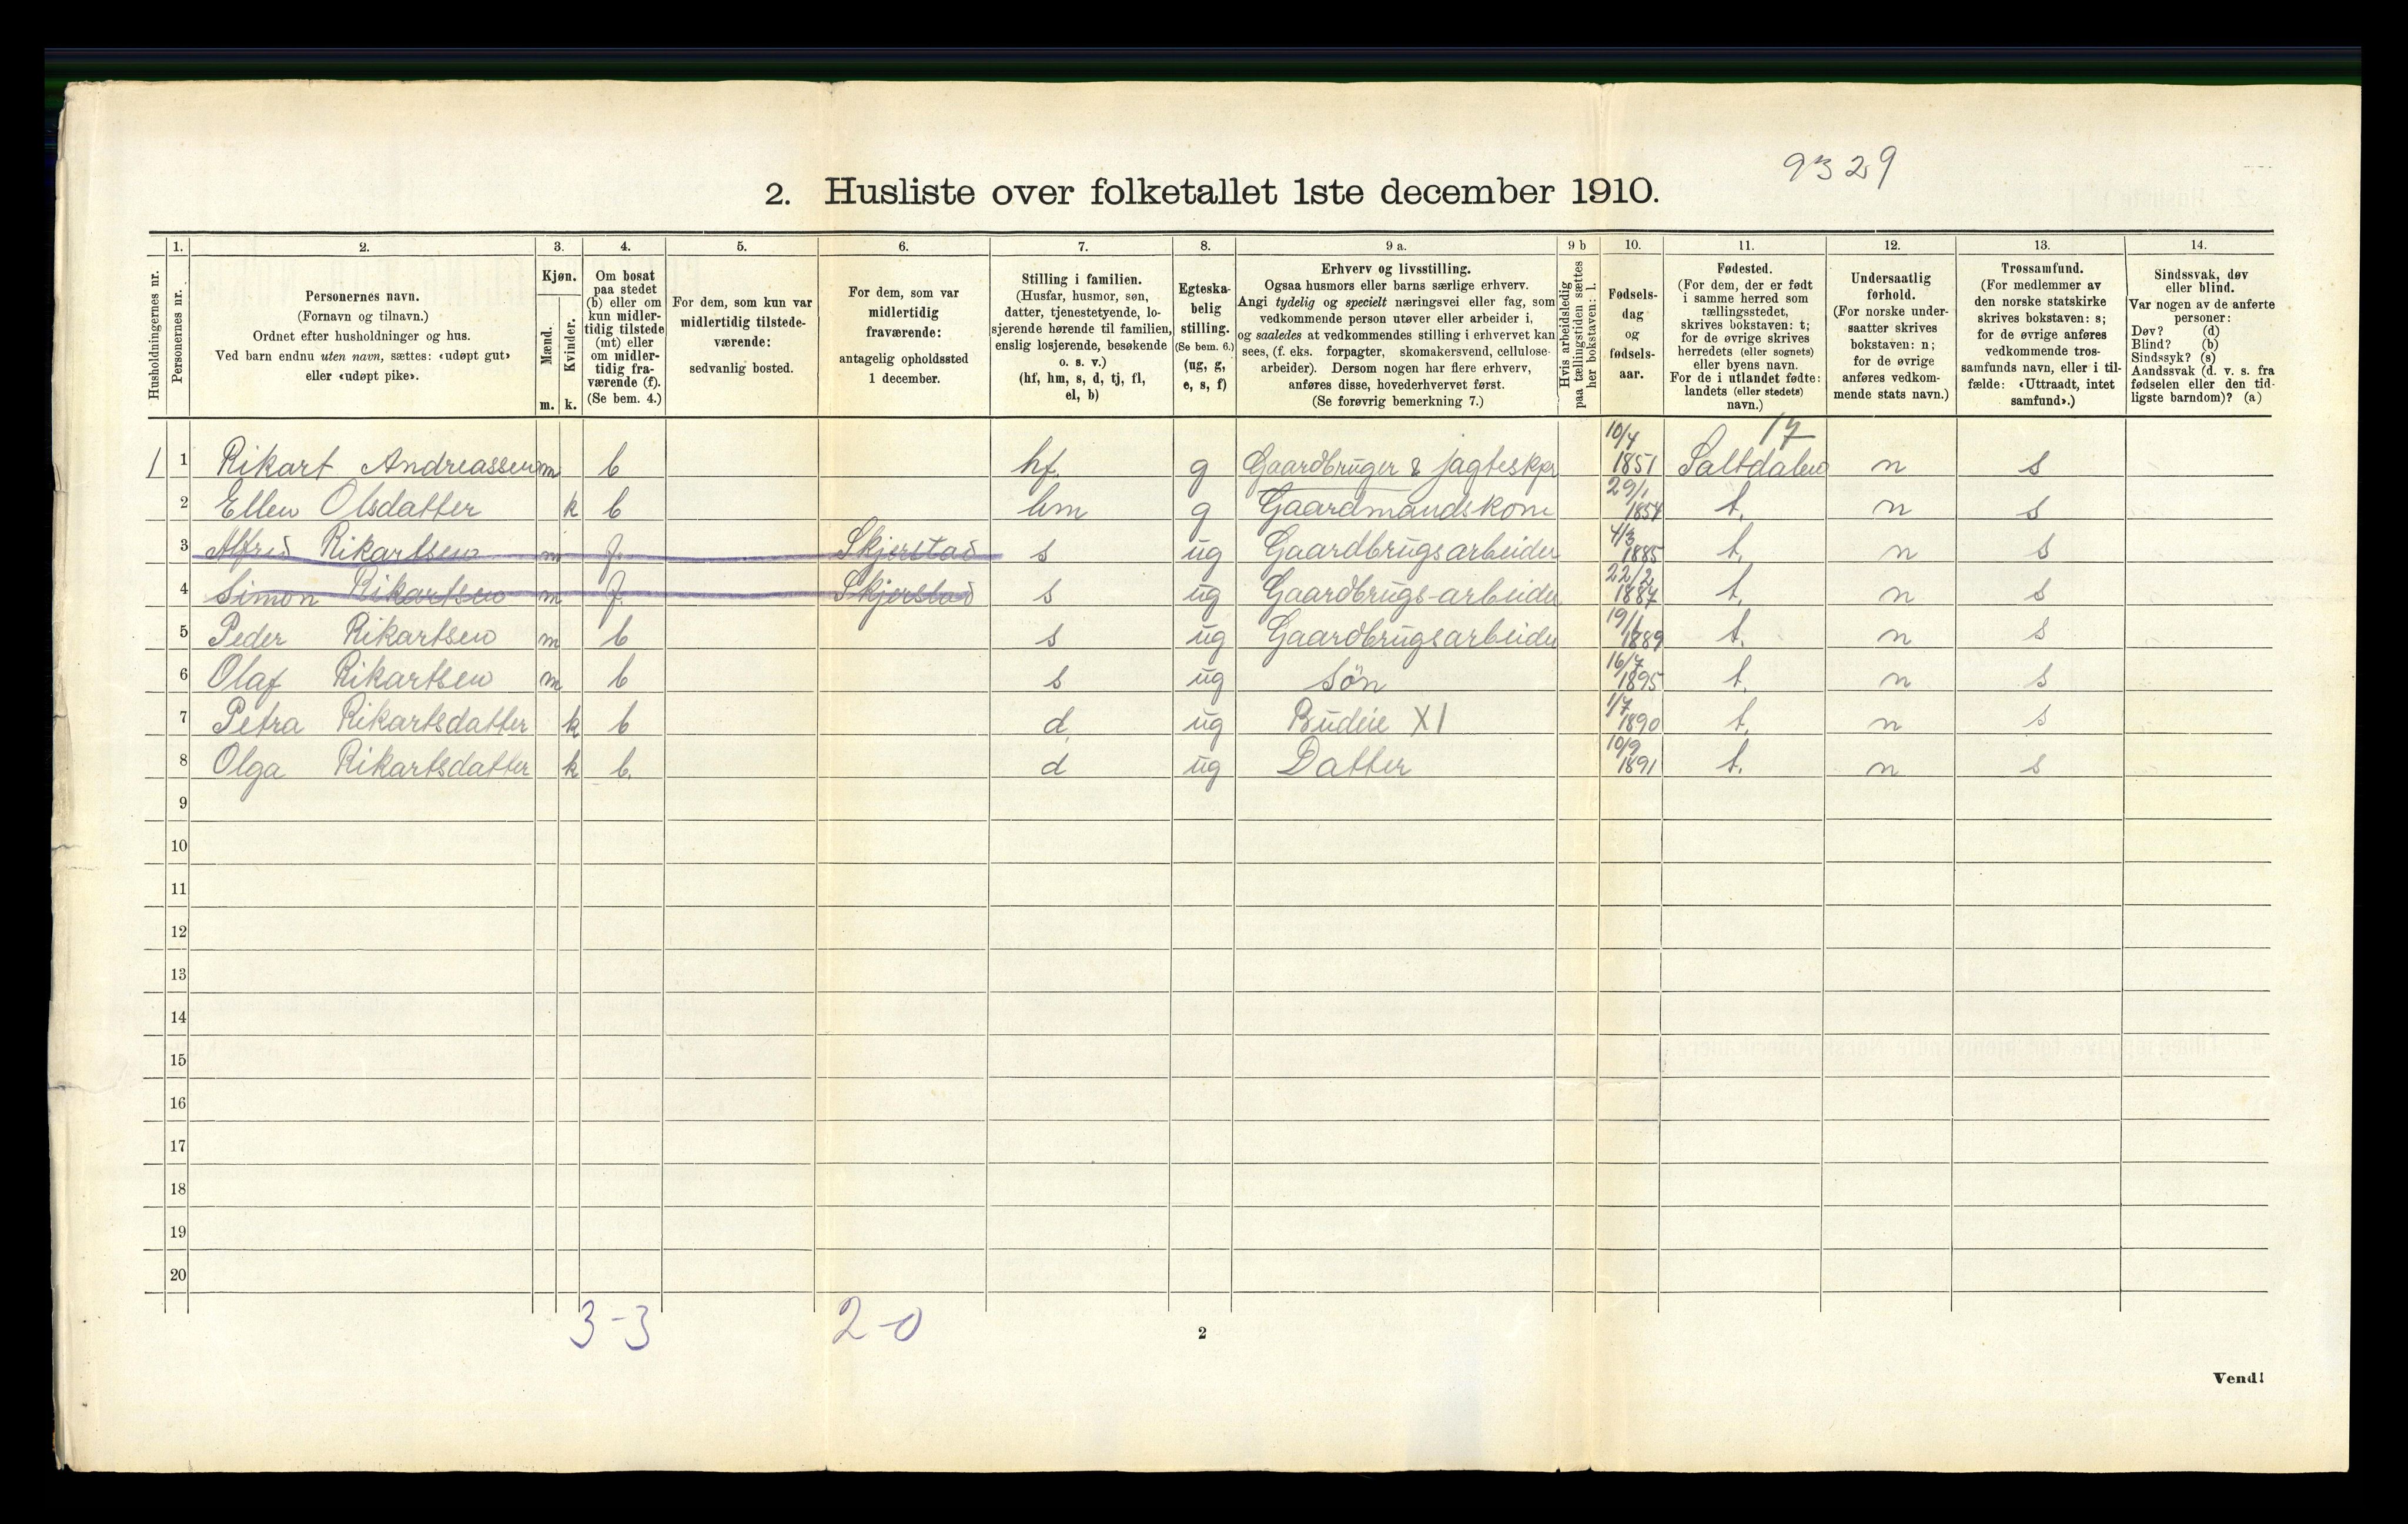 9329
2. Husliste over folketallet 1ste december 1910.
Husholdningernes nr.
1. Personernes nr.
2. Personernes navn.
(Fornavn og tilnavn.)
Ordnet efter husholdninger og hus.
Ved barn endnu uten navn, sættes: «udøpt gut»
eller «udøpt pike».
3. Kjøn.
Mænd. m.
Kvinder. k.
4. Om bosat
paa stedet
(b) eller om
kun midler-
tidig tilstede
(mt) eller
om midler-
tidig fra-
værende (f).
(Se bem. 4.)
5. For dem, som kun var
midlertidig tilstede-
værende:
sedvanlig bosted.
6. For dem, som var
midlertidig
fraværende:
antagelig opholdssted
1 december.
7. Stilling i familien.
(Husfar, husmor, søn,
datter, tjenestetyende, lo-
sjerende hørende til familien,
enslig losjerende, besøkende
o. s. v.)
(hf, hm, s, d, tj, fl,
el, b)
8. Egteska-
belig
stilling.
(Se bem. 6.)
(ug, g,
e, s, f)
9 a. Erhverv og livsstilling.
Ogsaa husmors eller barns særlige erhverv.
Angi tydelig og specielt næringsvei eller fag, som
vedkommende person utøver eller arbeider i,
og saaledes at vedkommendes stilling i erhvervet kan
sees, (f. eks. forpagter, skomakersvend, cellulose-
arbeider). Dersom nogen har flere erhverv,
anføres disse, hovederhvervet først.
(Se forøvrig bemerkning 7.)
9 b Hvis arbeidsledig
paa tællingstiden sættes
her bokstaven: l.
10. Fødsels-
dag
og
fødsels-
aar.
11. Fødested.
(For dem, der er født
i samme herred som
tællingsstedet,
skrives bokstaven: t;
for de øvrige skrives
herredets (eller sognets)
eller byens navn.
For de i utlandet fødte:
landets (eller stedets)
navn.)
12. Undersaatlig
forhold.
(For norske under-
saatter skrives
bokstaven: n;
for de øvrige
anføres vedkom-
mende stats navn.)
13. Trossamfund.
(For medlemmer av
den norske statskirke
skrives bokstaven: s;
for de øvrige anføres
vedkommende tros-
samfunds navn, eller i til-
fælde: «Uttraadt, intet
samfund».)
14. Sindssvak, døv
eller blind.
Var nogen av de anførte
personer:
Døv? (d)
Blind? (b)
Sindssyk? (s)
Aandssvak (d. v. s. fra
fødselen eller den tid-
ligste barndom)? (a)
17
1 1 Rikart Andreassen m b hf. g Gaardbruger & jagteskpr 10/4 1851 Saltdalen n s
2 Ellen Olsdatter k b hm g Gaardmandskone 29/1 1854 t. n s
3 Alfred Rikartsen m f. Skjerstad s ug Gaardbrugsarbeider 4/3 1885 t. n s
4 Simon Rikartsen m f. Skjerstad s ug Gaardbrugs-arbeider 22/2 1887 t. n s
5 Peder Rikartsen m b s ug Gaardbrugsarbeider 19/1 1889 t. n s
6 Olaf Rikartsen m b s ug Søn 16/7 1895 t. n s
7 Petra Rikartsdatter k b d. ug Budeie X1 1/7 1890 t. n s
8 Olga Rikartsdatter k b. d ug Datter 10/9 1891 t. n s
9
10
11
12
13
14
15
16
17
18
19
20
3-3 2-0
2
Vend!